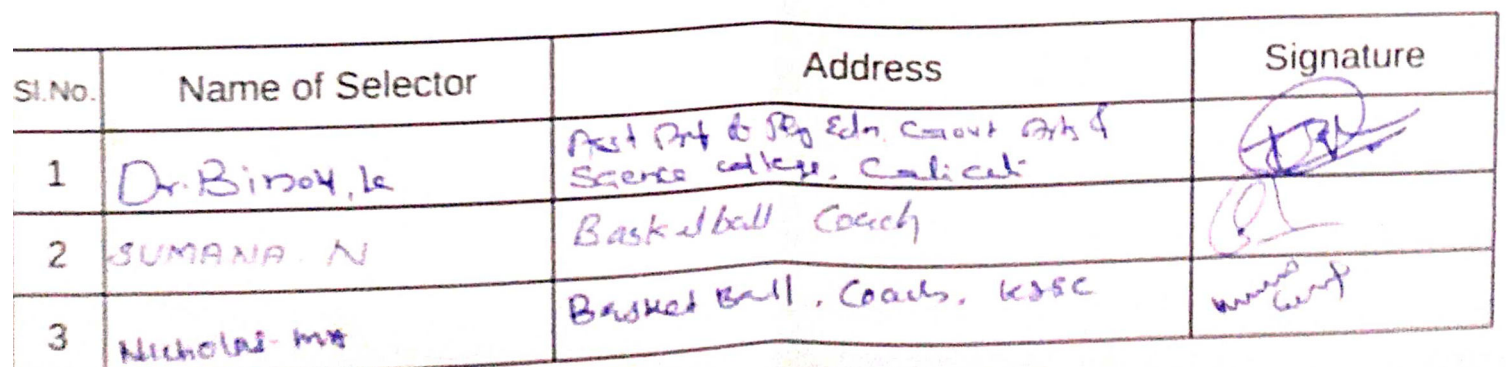 Sl.No. Name of Selector Address Signature
1 Dr. Binoy, k Asst Prof Phy Edn. Govt Arts &
Science college, Calicut
2 SUMANA N Basketball Coach
3 Nicholas Basket Ball, Coach, KSSC